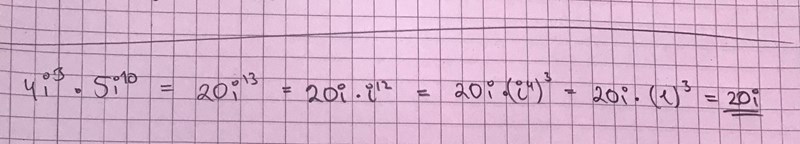 4i³ · 5i¹⁰ = 20i¹³ = 20i · i¹² = 20i · (i⁴)³ = 20i · (1)³ = 20i